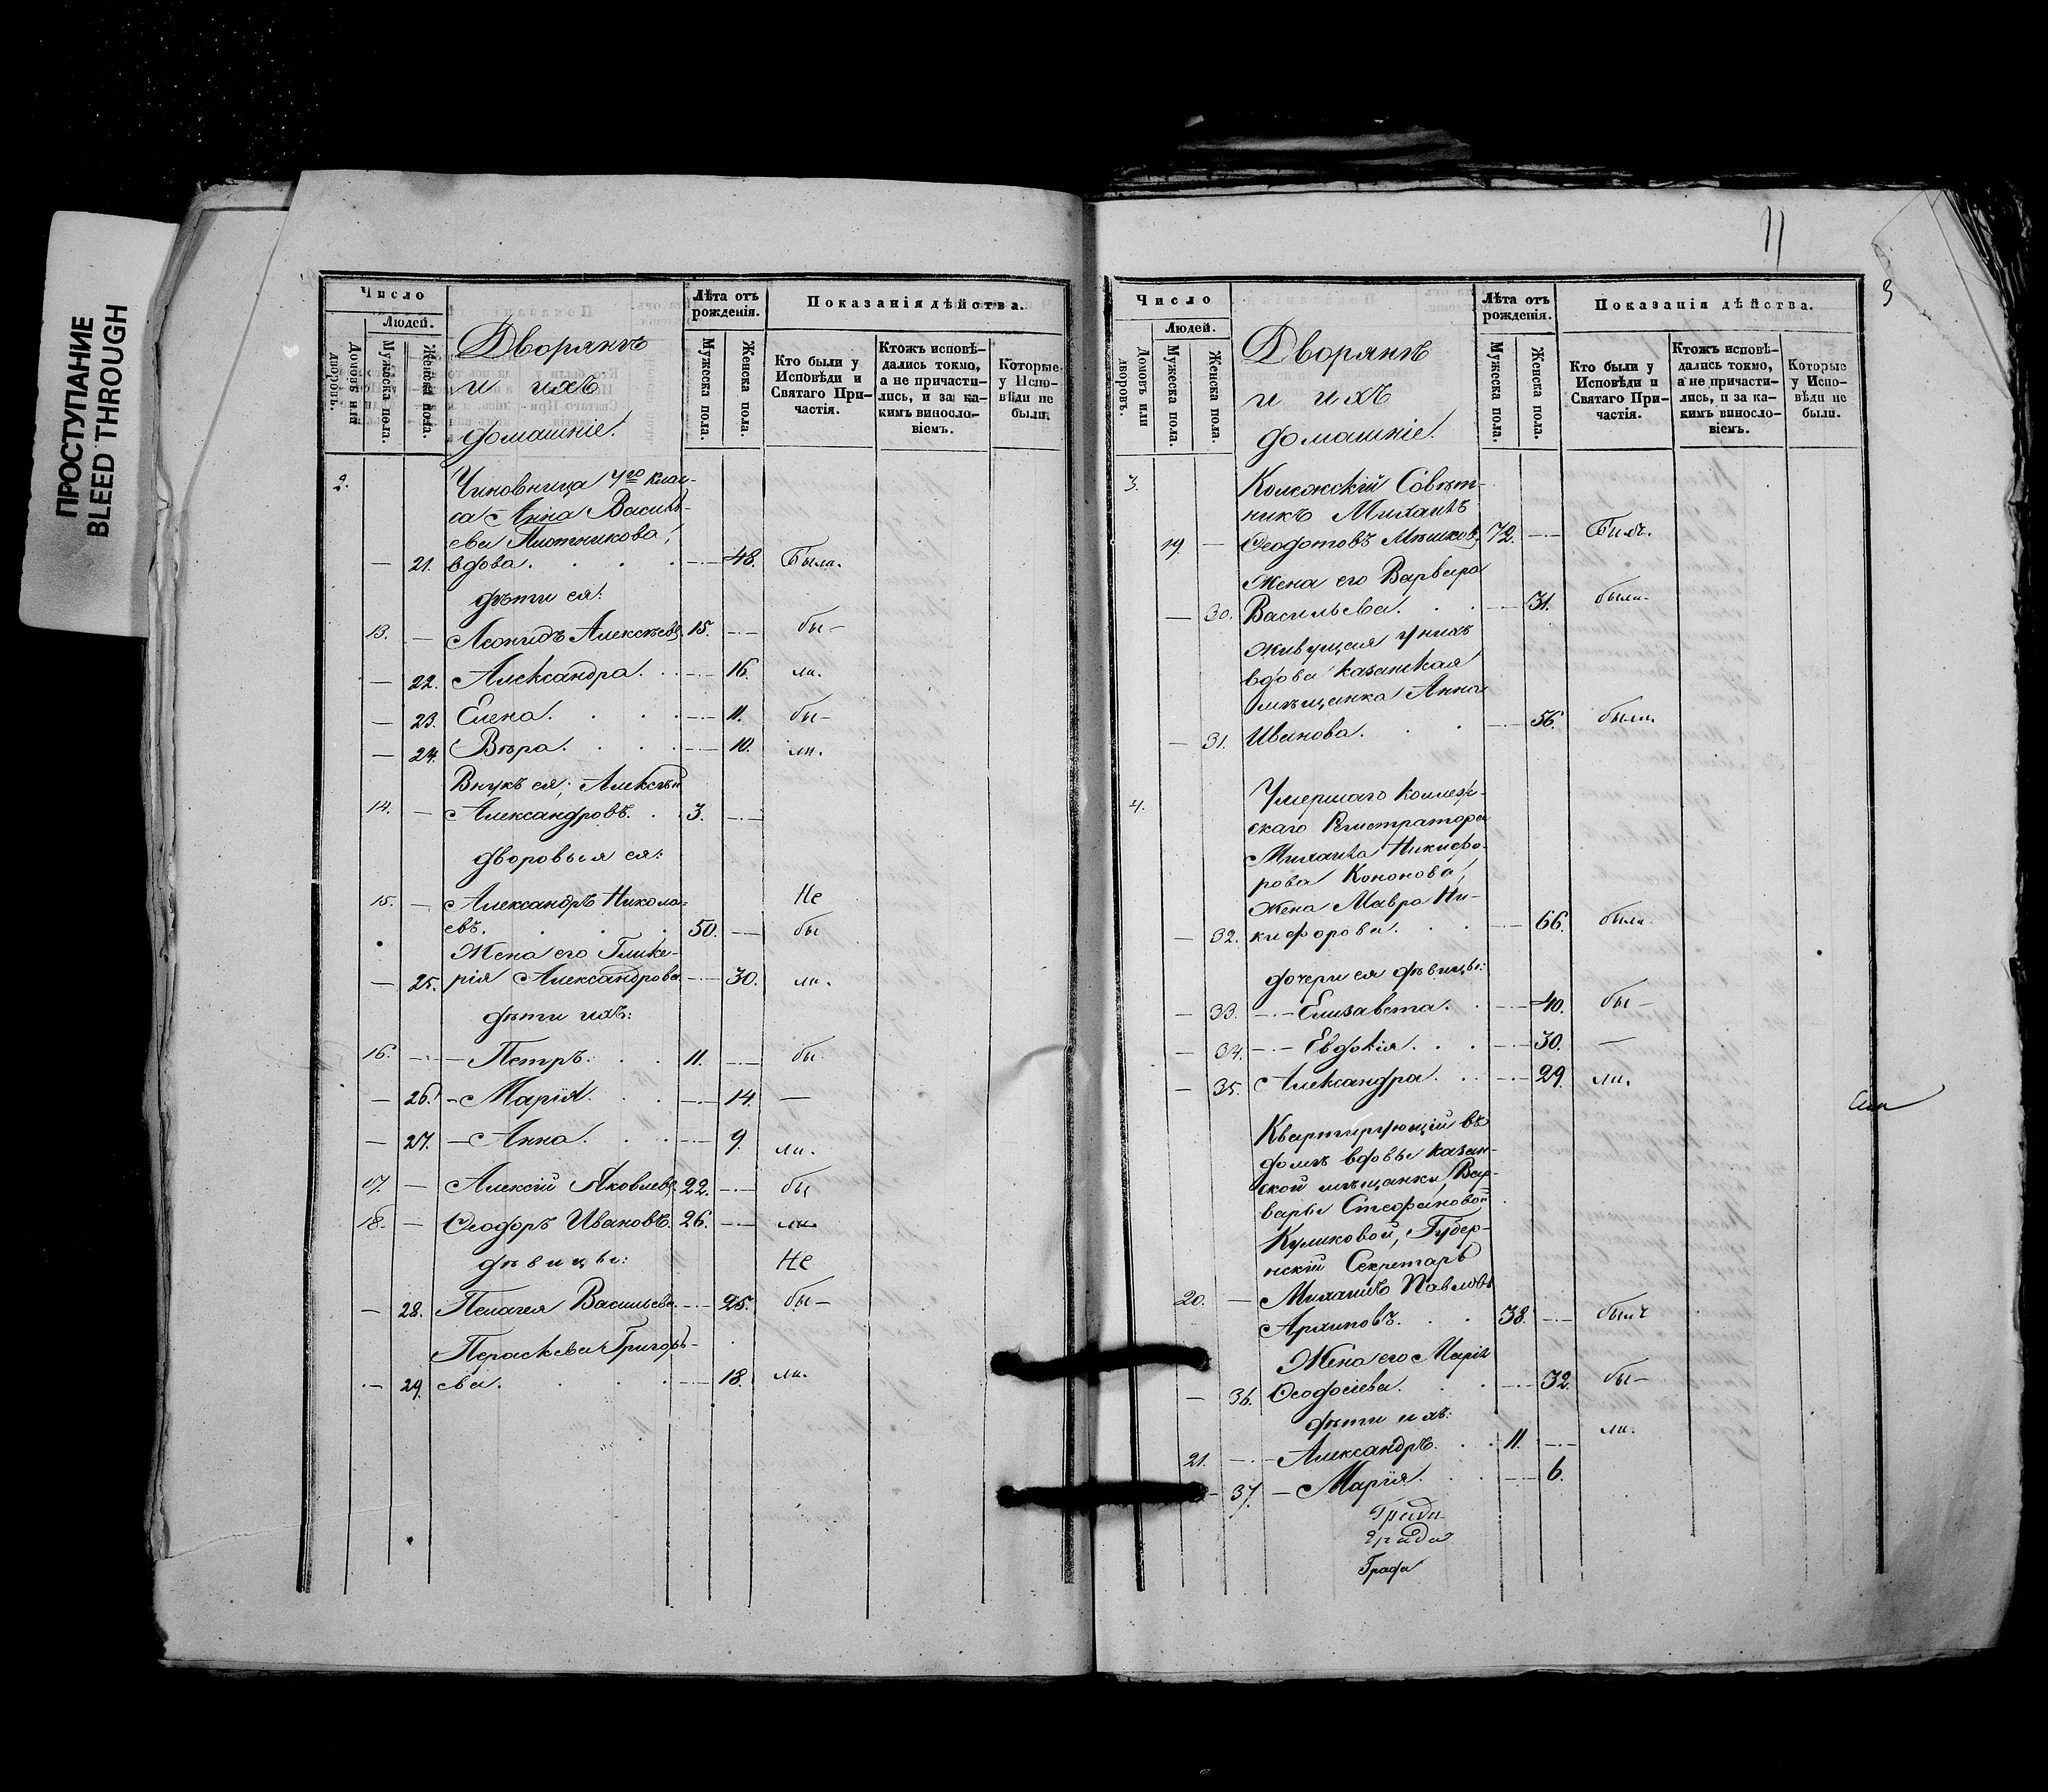 ПРОСТУПАНИЕ
BLEED THROUGH
Число
Людей.
Домовъ или дворовъ.
Мужеска пола.
Женска пола.
Дворянъ
и ихъ
домашніе.
Лѣта отъ рожденія.
Мужеска пола.
Женска пола.
Показанія дѣйства.
Кто были у Исповѣди и Святаго Причастія.
Ктожъ исповѣдались токмо, а не причастились, и за какимъ винословіемъ.
Которые у Исповѣди не были.
2. Чиновница 4го клас-
са Анна Василь-
ева
— 21. вдова. — 48. Была.
дѣти ея:
13. — Леонидъ Алексѣевъ 15. — бы-
— 22. Александра. — 16. ли.
— 23. Елена. — 11. бы-
— 24. Вѣра. — 10. ли.
Внукъ ея, Алексѣй
14. — Александровъ. 3. —
дворовыя ея:
15. — Александръ Никола- Не
евъ. 50. — бы
Жена его Глике-
— 25. рія Александрова — 30. ли.
дѣти ихъ:
16. — Петръ. 11. — бы
— 26. Марія. — 14. —
— 27. Анна. — 9. ли.
17. — Алексій Яковлевъ 22. — бы
18. — Ѳеодоръ Ивановъ. 26. — ли
дѣвицы: Не
— 28. Пелагея Васильева. — 25. бы-
Параскева Григорь-
— 29. ева. — 18. ли.
11
3
Число
Людей.
Домовъ или дворовъ.
Мужеска пола.
Женска пола.
Дворянъ
и ихъ
домашніе.
Лѣта отъ рожденія.
Мужеска пола.
Женска пола.
Показанія дѣйства.
Кто были у Исповѣди и Святаго Причастія.
Ктожъ исповѣдались токмо, а не причастились, и за какимъ винословіемъ.
Которые у Исповѣди не были.
3. Колежскій Совѣт-
никъ Михаилъ
19. — Ѳеодотовъ Мѣшковъ, 72. — Былъ.
Жена его Варвара
— 30. Васильева. — 31. была.
Живущая у нихъ
вдова казанская
мѣщанка Анна
— 31. Иванова. — 56. была.
4. Умершаго коллеж-
скаго Регистратора
Михаила Никифо-
рова Кононова,
Жена Мавра Ни-
— 32. кифорова. — 66. была.
дочери ея дѣвицы:
— 33. Елизавета. — 40. бы-
— 34. Евдокія. — 30. —
— 35. Александра. — 29. ли.
Квартирующій въ
домѣ вдовы казан-
ской мѣщанки, Вар-
вары Стефановой
Куликовой, Губер-
нскій Секретарь
20. — Михаилъ Павловъ
Архиповъ. 38. — былъ
Жена его Марія
— 36. Ѳеодосіева. — 32. бы-
дѣти ихъ: ли.
21. — Александръ. 11. —
— 37. Марія. — 6.
Града
Града
Града